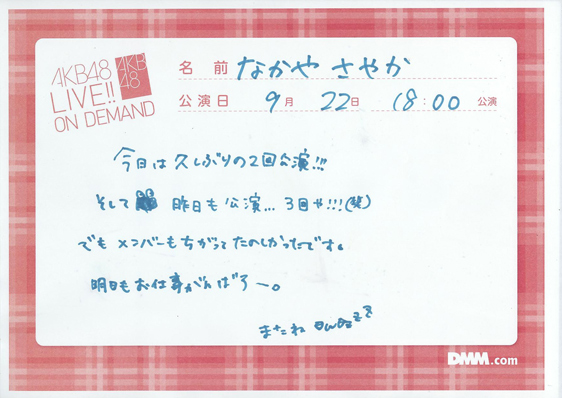 AKB48
LIVE!!
ON DEMAND
AKB
48
名前 なかや さやか
公演日 9月 22日 18:00 公演
今日は久しぶりの2回公演!!!
そして 昨日も公演... 3回や!!!(笑)
でもメンバーもちがってたのしかったです。
明日もお仕事がんばろー。
またね
DMM.com